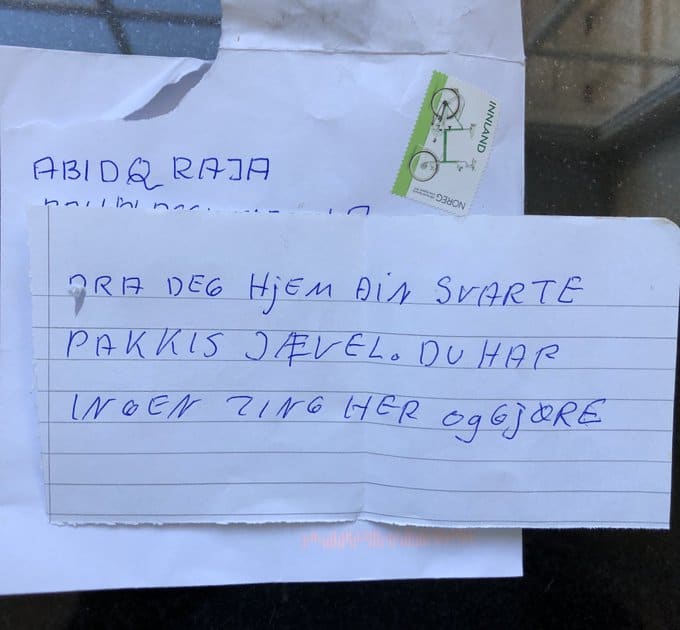 ABID Q RAJA
INNLAND
NOREG
DRA DEG HjEM DiN SVARTE
PAKKIS JÆVEL. DU HAR
INGEN TING HER Og GjØRE